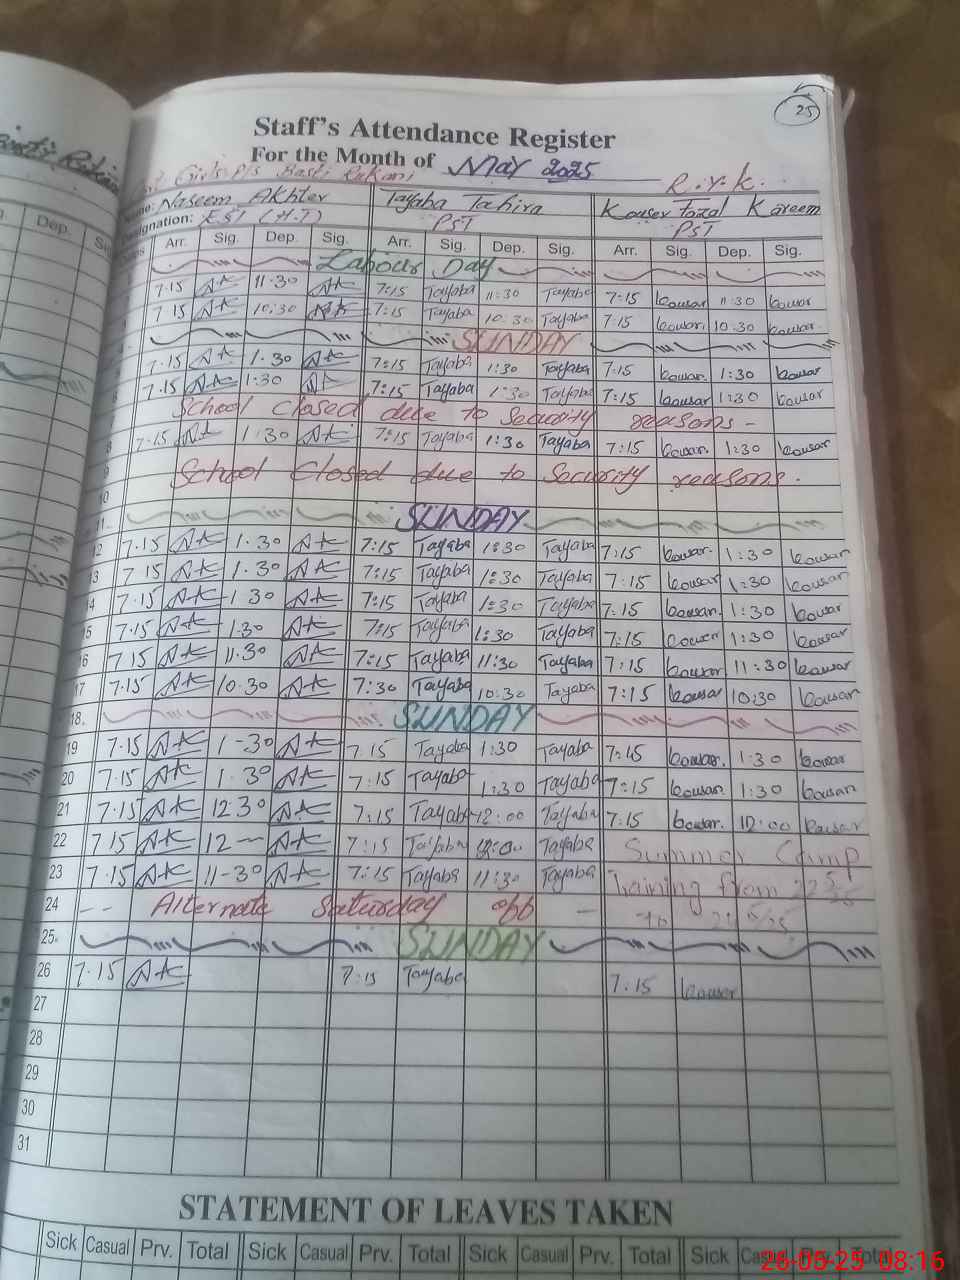 25
Staff's Attendance Register
For the Month of May 2025
Girls P/S Basti Rukani R.Y.K.
Name: Naseem Akhter Tayaba Tahira Kouser Fazal Kareem
Designation: EST (H.T) PST PST
Arr. Sig. Dep. Sig. Arr. Sig. Dep. Sig. Arr. Sig. Dep. Sig.
Labour Day
7.15 AK 11.30 AK 7:15 Tayaba 11:30 Tayaba 7:15 kousar 11:30 kousar
7.15 AK 10.30 AK 7:15 Tayaba 10:30 Tayaba 7:15 kousar. 10.30 kousar
SUNDAY
7.15 AK 1.30 AK 7:15 Tayaba 1:30 Tayaba 7:15 kousar. 1:30 kousar
7.15 AK 1:30 AK 7:15 Tayaba 1:30 Tayaba 7:15 kousar. 1:30 kousar
School closed due to Security reasons -
8 7.15 AK 1.30 AK 7:15 Tayaba 1:30 Tayaba 7:15 kousar. 1:30 kousar
9 School Closed due to Security reasons.
10
11. SUNDAY
12 7.15 AK 1.30 AK 7:15 Tayaba 1:30 Tayaba 7:15 kousar. 1:30 kousar
13 7 15 AK 1.30 AK 7:15 Tayaba 1:30 Tayaba 7:15 kousar 1:30 kousar
14 7.15 AK 1 30 AK 7:15 Tayaba 1:30 Tayaba 7:15 kousar. 1:30 kousar
15 7.15 AK 1.30 AK 7:15 Tayaba 1:30 Tayaba 7:15 kousar 1:30 kousar
16 7 15 AK 11.30 AK 7:15 Tayaba 11:30 Tayaba 7:15 kousar 11:30 kousar
17 7.15 AK 10.30 AK 7:30 Tayaba 10:30 Tayaba 7:15 kousar 10:30 kousar
18. SUNDAY
19 7.15 AK 1-30 AK 7 15 Tayaba 1:30 Tayaba 7:15 kousar. 1:30 kousar
20 7.15 AK 1.30 AK 7:15 Tayaba 1:30 Tayaba 7:15 kousar. 1:30 kousar
21 7.15 AK 12 30 AK 7:15 Tayaba 12:00 Tayaba 7:15 kousar. 12:00 kousar
22 7 15 AK 12 — AK 7:15 Tayaba 12:00 Tayaba Summer Camp
23 7.15 AK 11-30 AK 7:15 Tayaba 11:30 Tayaba Training from 22
24 -- Alternate Saturday off — to
25. SUNDAY
26 7.15 AK 7:15 Tayaba 7:15 kouser
27
28
29
30
31
STATEMENT OF LEAVES TAKEN
Sick Casual Prv. Total Sick Casual Prv. Total Sick Casual Prv. Total Sick Casual Prv. Total
26-05-25 08:16
Dep.